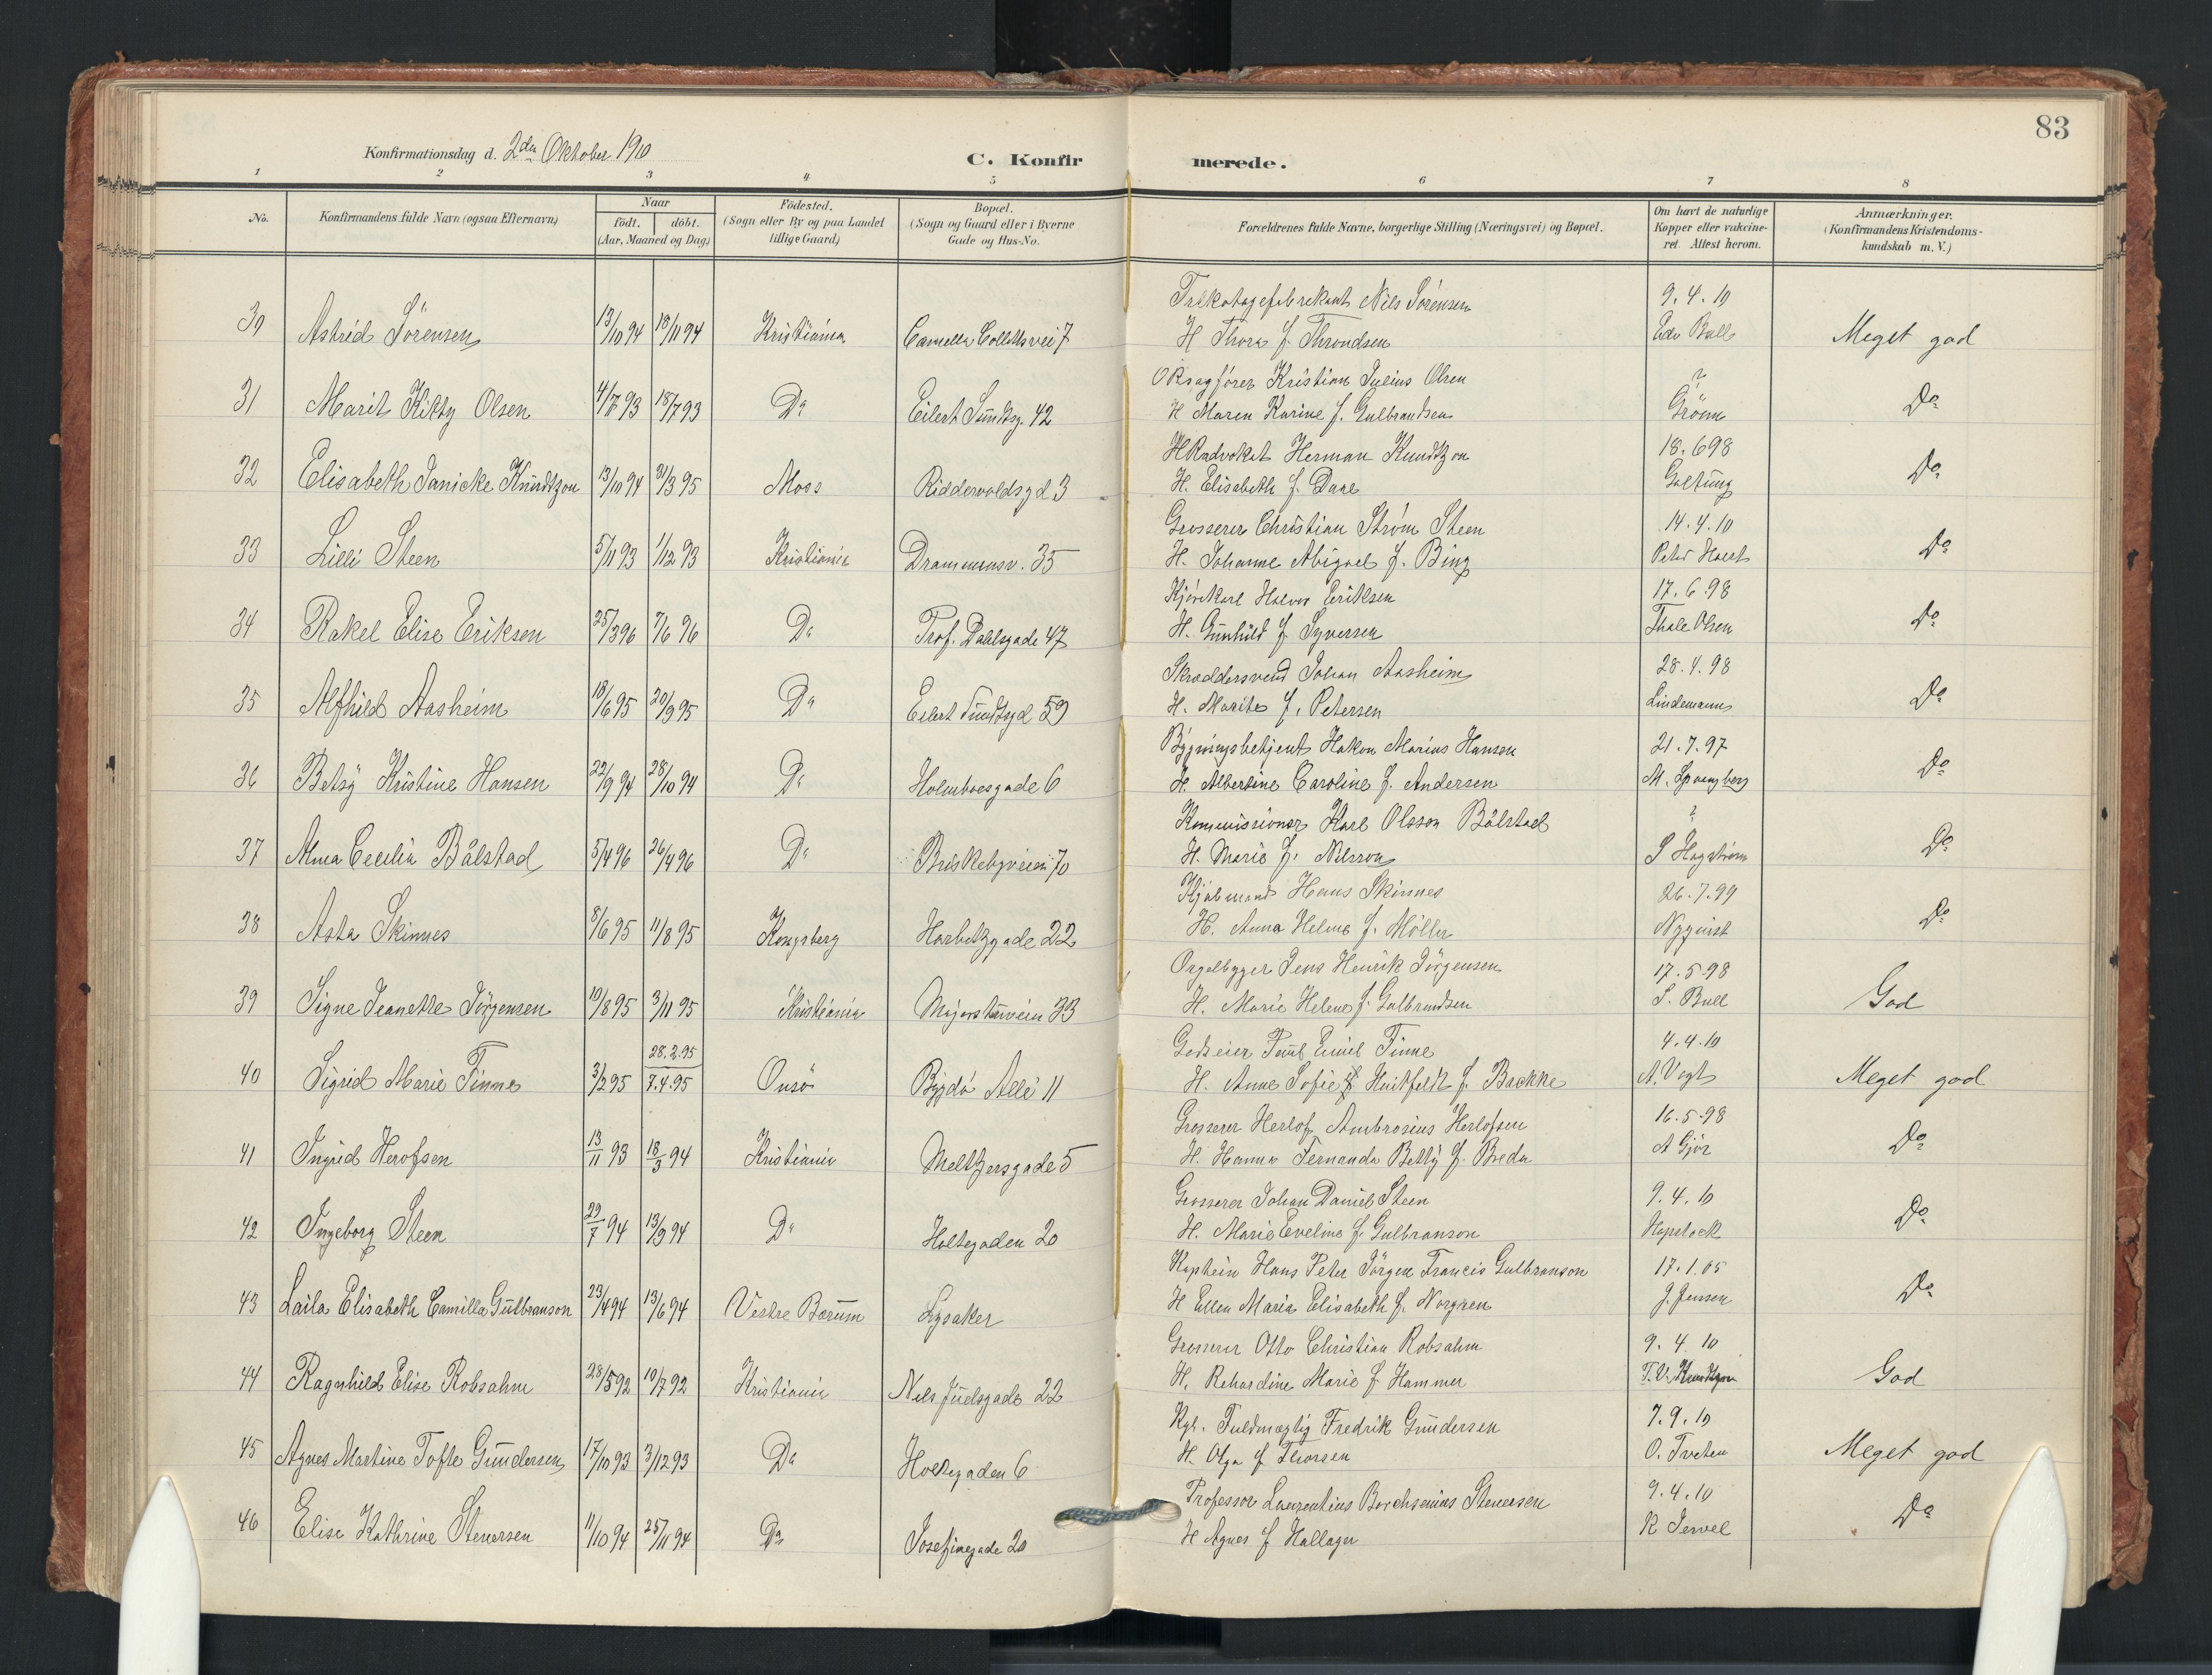 83
Konfirmationsdag d. 2den Oktober 1910
C. Konfirmerede.
1 2 3 4 5 6 7 8
No. Konfirmandens fulde Navn (ogsaa Efternavn) Naar födt. döbt. (Aar, Maaned og Dag) Födested. (Sogn eller By og paa Landet tillige Gaard) Bopæl. (Sogn og Gaard eller i Byerne Gade og Hus-No. Forældrenes fulde Navne, borgerlige Stilling (Næringsvei) og Bopæl. Om havt de naturlige Kopper eller vakcineret. Attest herom. Anmærkninger. (Konfirmandens Kristendomskundskab m. V.)
Trikotagefabrikant Nils Sörensen 9.4.10
30 Astrid Sörensen 13/10 94 18/11 94 Kristiania Camilla Colletts vei 7 H Thora f. Throndsen Edv Bull Meget god
ORsagförer Kristian Julius Olsen ?
31 Marit Kitty Olsen 4/7 93 18/7 93 Do Eilert Sundtsg. 42 H Maren Karine f. Gulbrandsen Grönn Do
HRadvokat Herman Knudtzon 18.6 98
32 Elisabeth Janicke Knudtzon 13/10 94 31/3 95 Moss Riddervoldsgd 3 H. Elisabeth f. Daae Galtung Do
Grosserer Christian Ström Steen 14.4.10
33 Lilli Steen 5/11 93 1/12 93 Kristiania Drammensv. 35 H. Johanne Abigael f. Bing Peter Holst Do
Kjörekarl Halvor Eriksen 17.6.98
34 Rakel Elise Eriksen 25/3 96 7/6 96 Do Prof. Dahlsgade 47 H. Gunhild f. Syversen Thale Olsen Do
Skræddersvend Johan Aasheim 28.4.98
35 Alfhild Aasheim 18/6 95 20/9 95 Do Eilert Sundtsgd 59 H. Marite f. Petersen Lindemann Do
Bygningsbetjent Hakon Marius Hansen 21.7.97
36 Betsy Kristine Hansen 22/9 94 28/10 94 Do Holmboesgade 6 H. Albertine Caroline f. Andersen M. Spangberg Do
Kommissionær Karl Olsson Bålstad ?
37 Alma Cecilia Bålstad 5/4 96 26/4 96 Do Briskebyveien 70 H. Marie f. Nilsson S Hagström Do
Hans Skinnes 26.7.99
38 Asta Skinnes 8/6 95 11/8 95 Kongsberg Harbitzgade 22 H. Anna Helma f. Möller Nyquist Do
Orgelbygger Jens Henrik Jörgensen 17.5.98
39 Signe Jeanette Jörgensen 10/8 95 3/11 95 Kristiania Majorstuvein 33 H. Marie Helene f. Gulbrandsen S. Bull God
28.2.95 Godseier Paul Emil Finne 4.4.10
40 Sigrid Marie Finne 3/2 95 7.4.95 Onsö Bygdö Allé 11 H. Anne Sofie Huitfeldt f. Backke A. Vogt Meget god
Grosserer Herlof Ambrosius Herlofsen 16.5.98
41 Ingrid Herofsen 13/11 93 18/3 94 Kristiania Meltzersgade 5 H. Hanna Fernanda Betty f. Breda A Gjör Do
Grosserer Johan Daniel Steen 9.4.10
42 Ingeborg Steen 29/7 94 13/9 94 Do Holtegaden 20 H. Marie Eveline f. Gulbranson Hopstock Do
Kaptein Hans Peter Jörgen Francis Gulbranson 17.1.05
43 Laila Elisabeth Camilla Gulbranson 23/4 94 13/6 94 Vestre Bærum Lysaker H Ellen Maria Elisabeth f. Norgren J. Jensen Do
Grosserer Otto Christian Robsahm 9.4.10
44 Ragnhild Elise Robsahm 28/5 92 10/7 92 Kristiania Nils Juelsgade 22 H. Rikardine Marie f Hammer T.V. Knudtzon God
Kgl. Fuldmægtig Fredrik Gundersen 7.9.10
45 Agnes Martine Tofte Gundersen 17/10 93 3/12 93 Do Holtegaden 6 H. Olga f Thorsen O. Tveten Meget god
Professor Laurentius Borchsenius Stenersen 9.4.10
46 Elise Kathrine Stenersen 11/10 94 25/11 94 Do Josefinegade 20 H Agnes f Hallager K Jervel Do